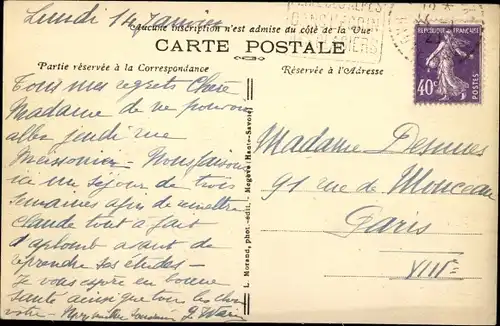 Lundi 14 Janvier
Aucune inscription n'est admise du côté de la Vue
CARTE POSTALE
Partie réservée à la Correspondance
Réservée à l'Adresse
REPUBLIQUE FRANÇAISE
40c
POSTES
Tous mes regrets Chère
Madame de ne pouvoir
aller jeudi rue
Meissonier - Nous faisons
ici un séjour de trois
semaines afin de remettre
Claude tout à fait
d'aplomb avant de
reprendre ses études -
Je vous espère en bonne
santé ainsi que tous les
vôtre -
L. Morand, phot.-édit. - Megève (Haute-Savoie)
Madame Desmes
91 rue de Monceau
Paris
VIIIe